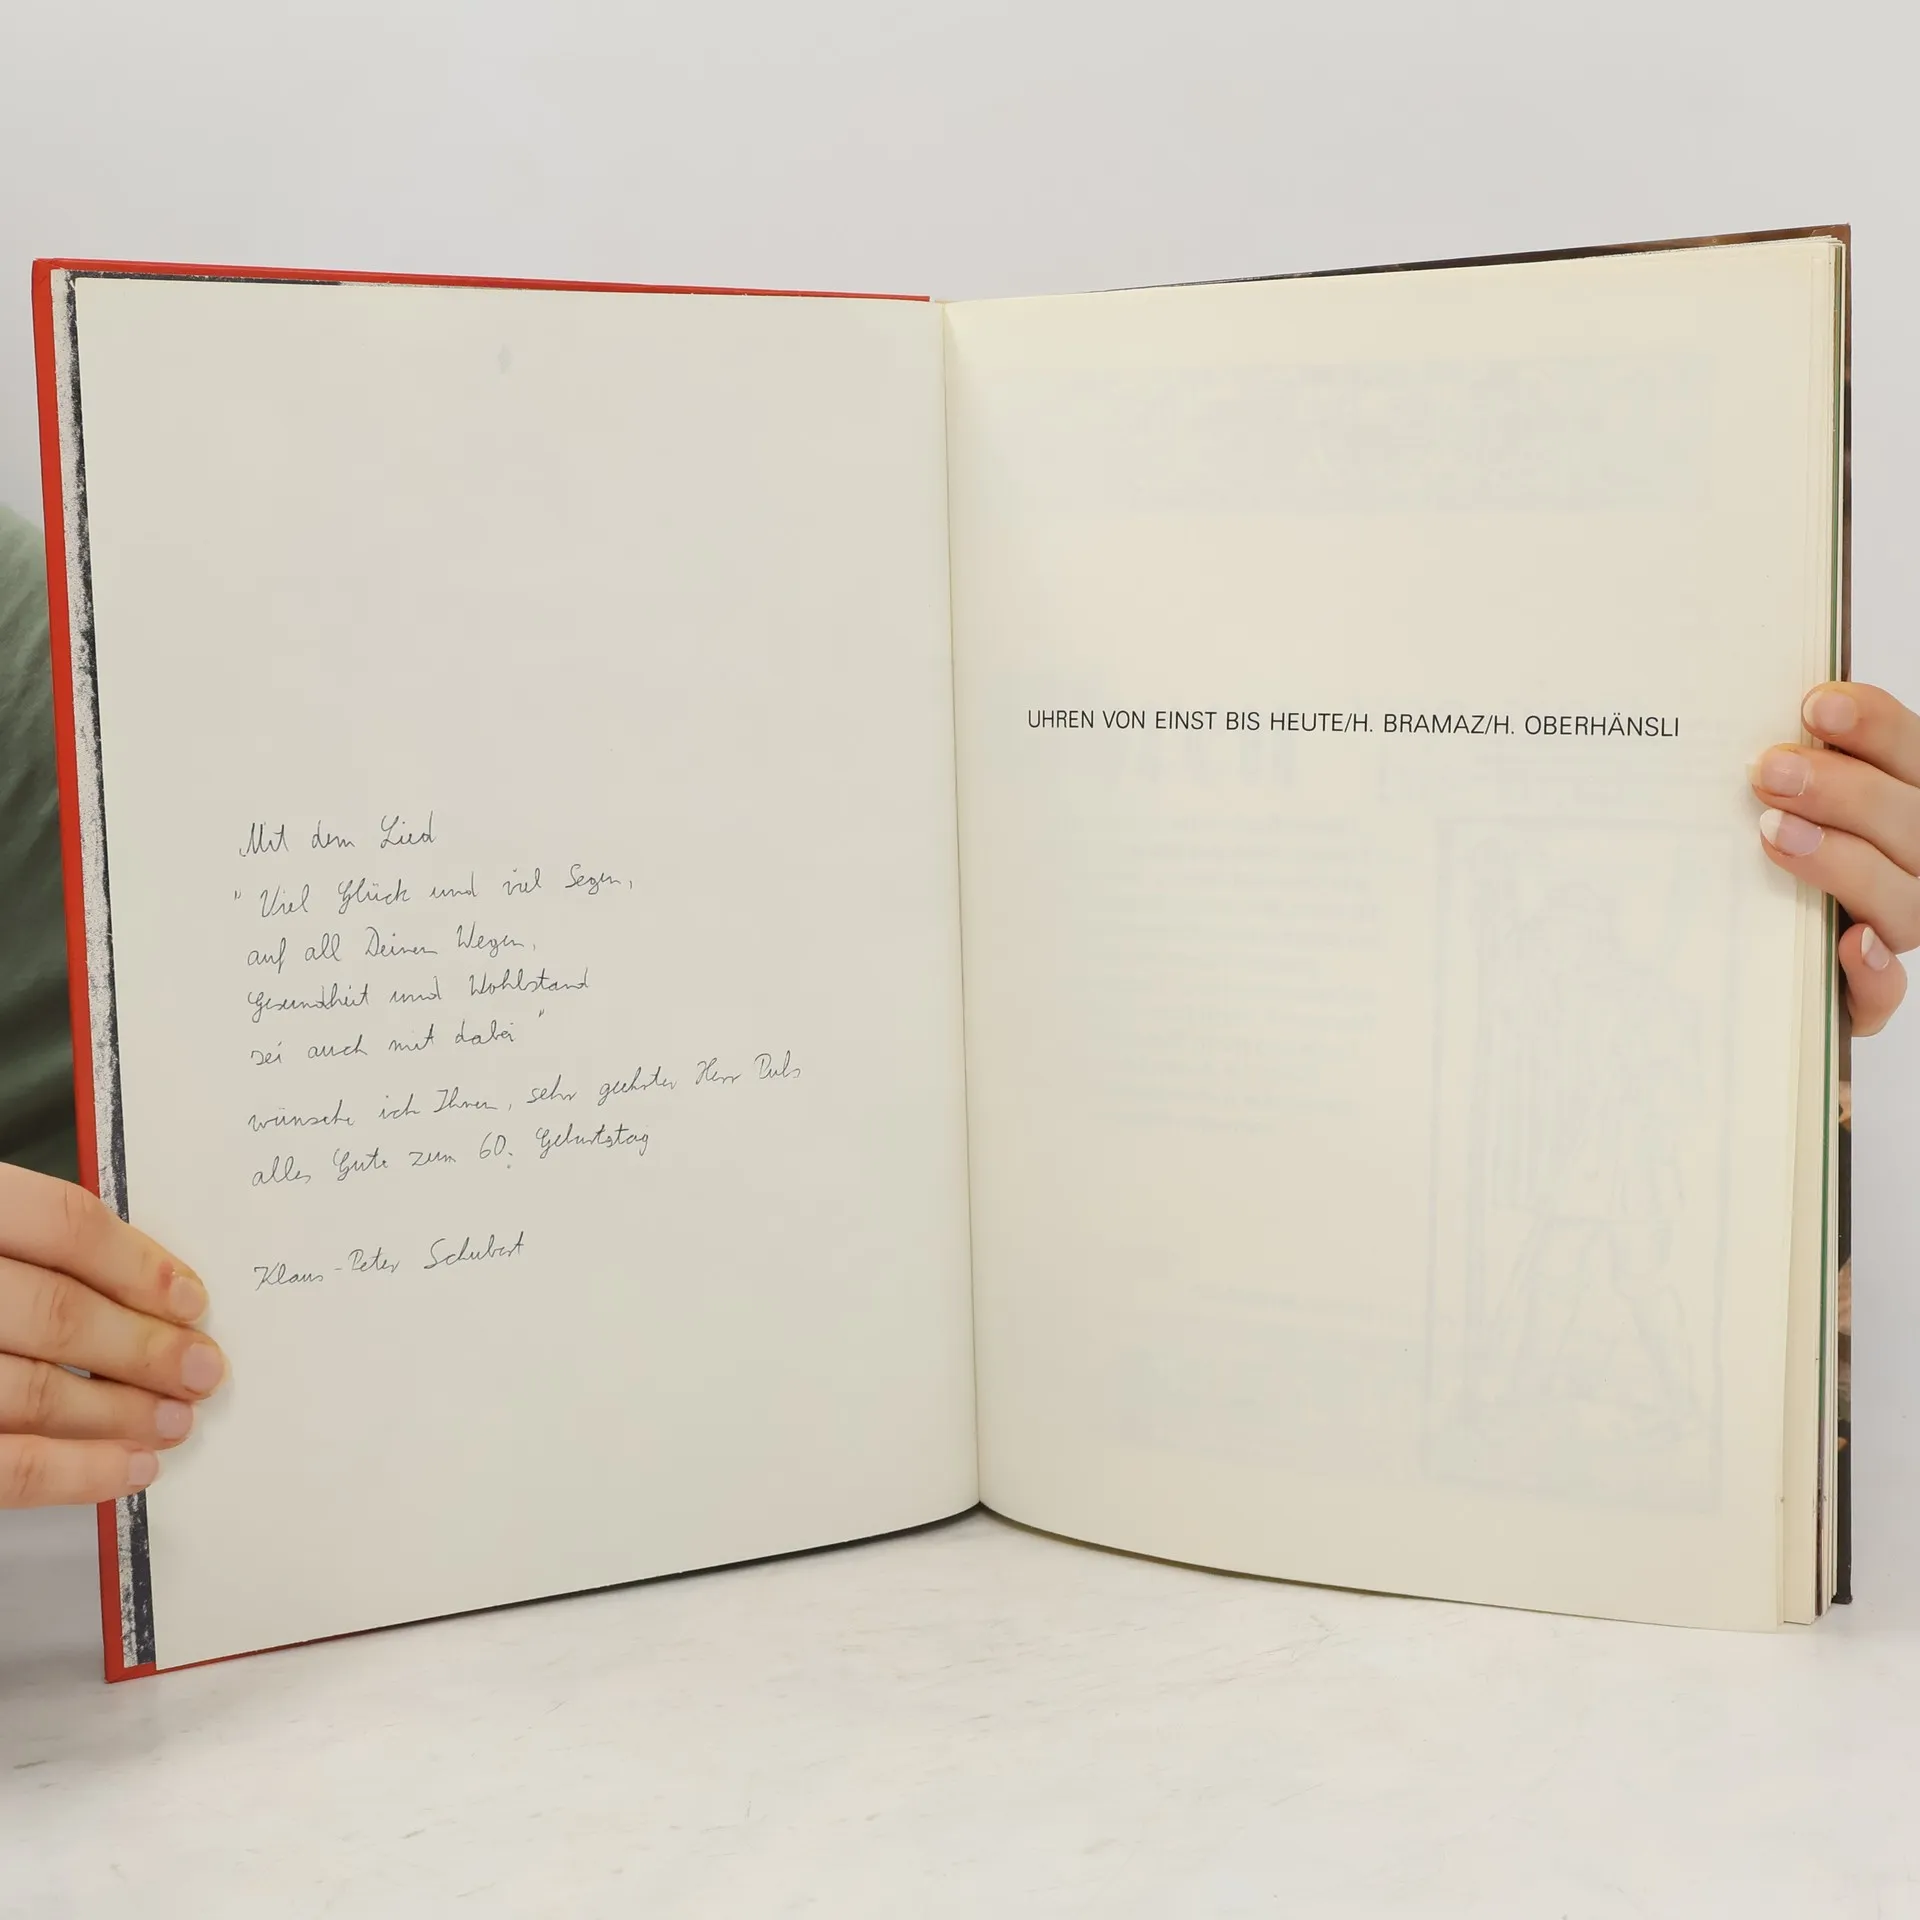 Mit dem Lied
" Viel Glück und viel Segen,
auf all Deinen Wegen,
Gesundheit und Wohlstand
sei auch mit dabei "
wünsche ich Ihnen, sehr geehrter Herr Puls
alles Gute zum 60. Geburtstag
Klaus-Peter Schubert
UHREN VON EINST BIS HEUTE/H. BRAMAZ/H. OBERHÄNSLI